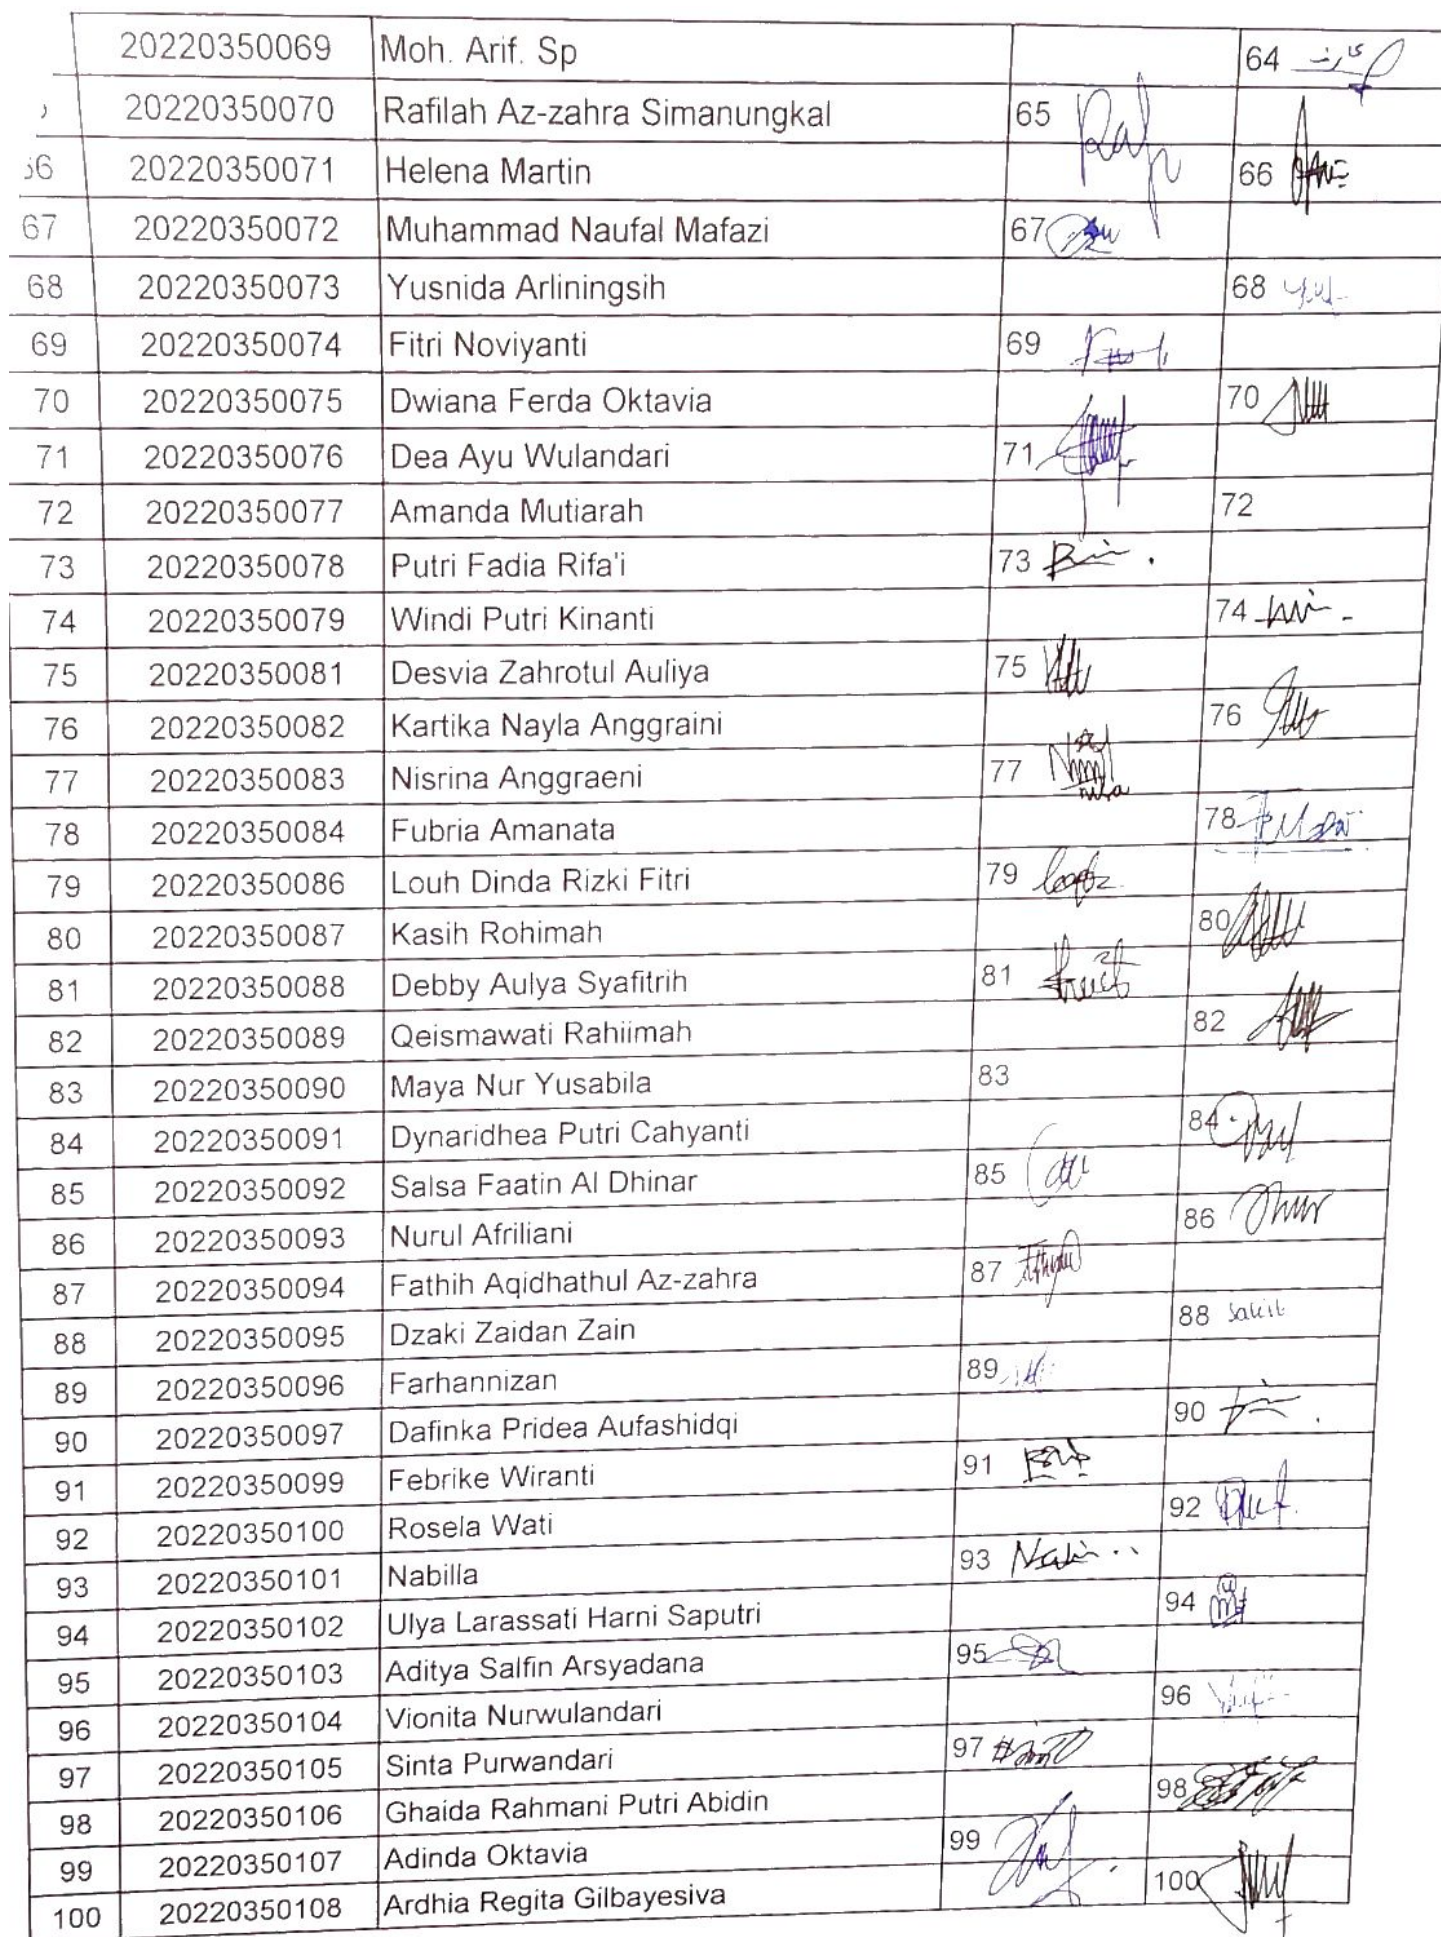 20220350069 Moh. Arif. Sp 64
20220350070 Rafilah Az-zahra Simanungkal 65
20220350071 Helena Martin 66
67 20220350072 Muhammad Naufal Mafazi 67
68 20220350073 Yusnida Arliningsih 68
69 20220350074 Fitri Noviyanti 69
70 20220350075 Dwiana Ferda Oktavia 70
71 20220350076 Dea Ayu Wulandari 71
72 20220350077 Amanda Mutiarah 72
73 20220350078 Putri Fadia Rifa'i 73
74 20220350079 Windi Putri Kinanti 74
75 20220350081 Desvia Zahrotul Auliya 75
76 20220350082 Kartika Nayla Anggraini 76
77 20220350083 Nisrina Anggraeni 77
78 20220350084 Fubria Amanata 78
79 20220350086 Louh Dinda Rizki Fitri 79
80 20220350087 Kasih Rohimah 80
81 20220350088 Debby Aulya Syafitrih 81
82 20220350089 Qeismawati Rahiimah 82
83 20220350090 Maya Nur Yusabila 83
84 20220350091 Dynaridhea Putri Cahyanti 84
85 20220350092 Salsa Faatin Al Dhinar 85
86 20220350093 Nurul Afriliani 86
87 20220350094 Fathih Aqidhathul Az-zahra 87
88 20220350095 Dzaki Zaidan Zain 88 sakit
89 20220350096 Farhannizan 89
90 20220350097 Dafinka Pridea Aufashidqi 90
91 20220350099 Febrike Wiranti 91
92 20220350100 Rosela Wati 92
93 20220350101 Nabilla 93
94 20220350102 Ulya Larassati Harni Saputri 94
95 20220350103 Aditya Salfin Arsyadana 95
96 20220350104 Vionita Nurwulandari 96
97 20220350105 Sinta Purwandari 97
98 20220350106 Ghaida Rahmani Putri Abidin 98
99 20220350107 Adinda Oktavia 99
100 20220350108 Ardhia Regita Gilbayesiva 100